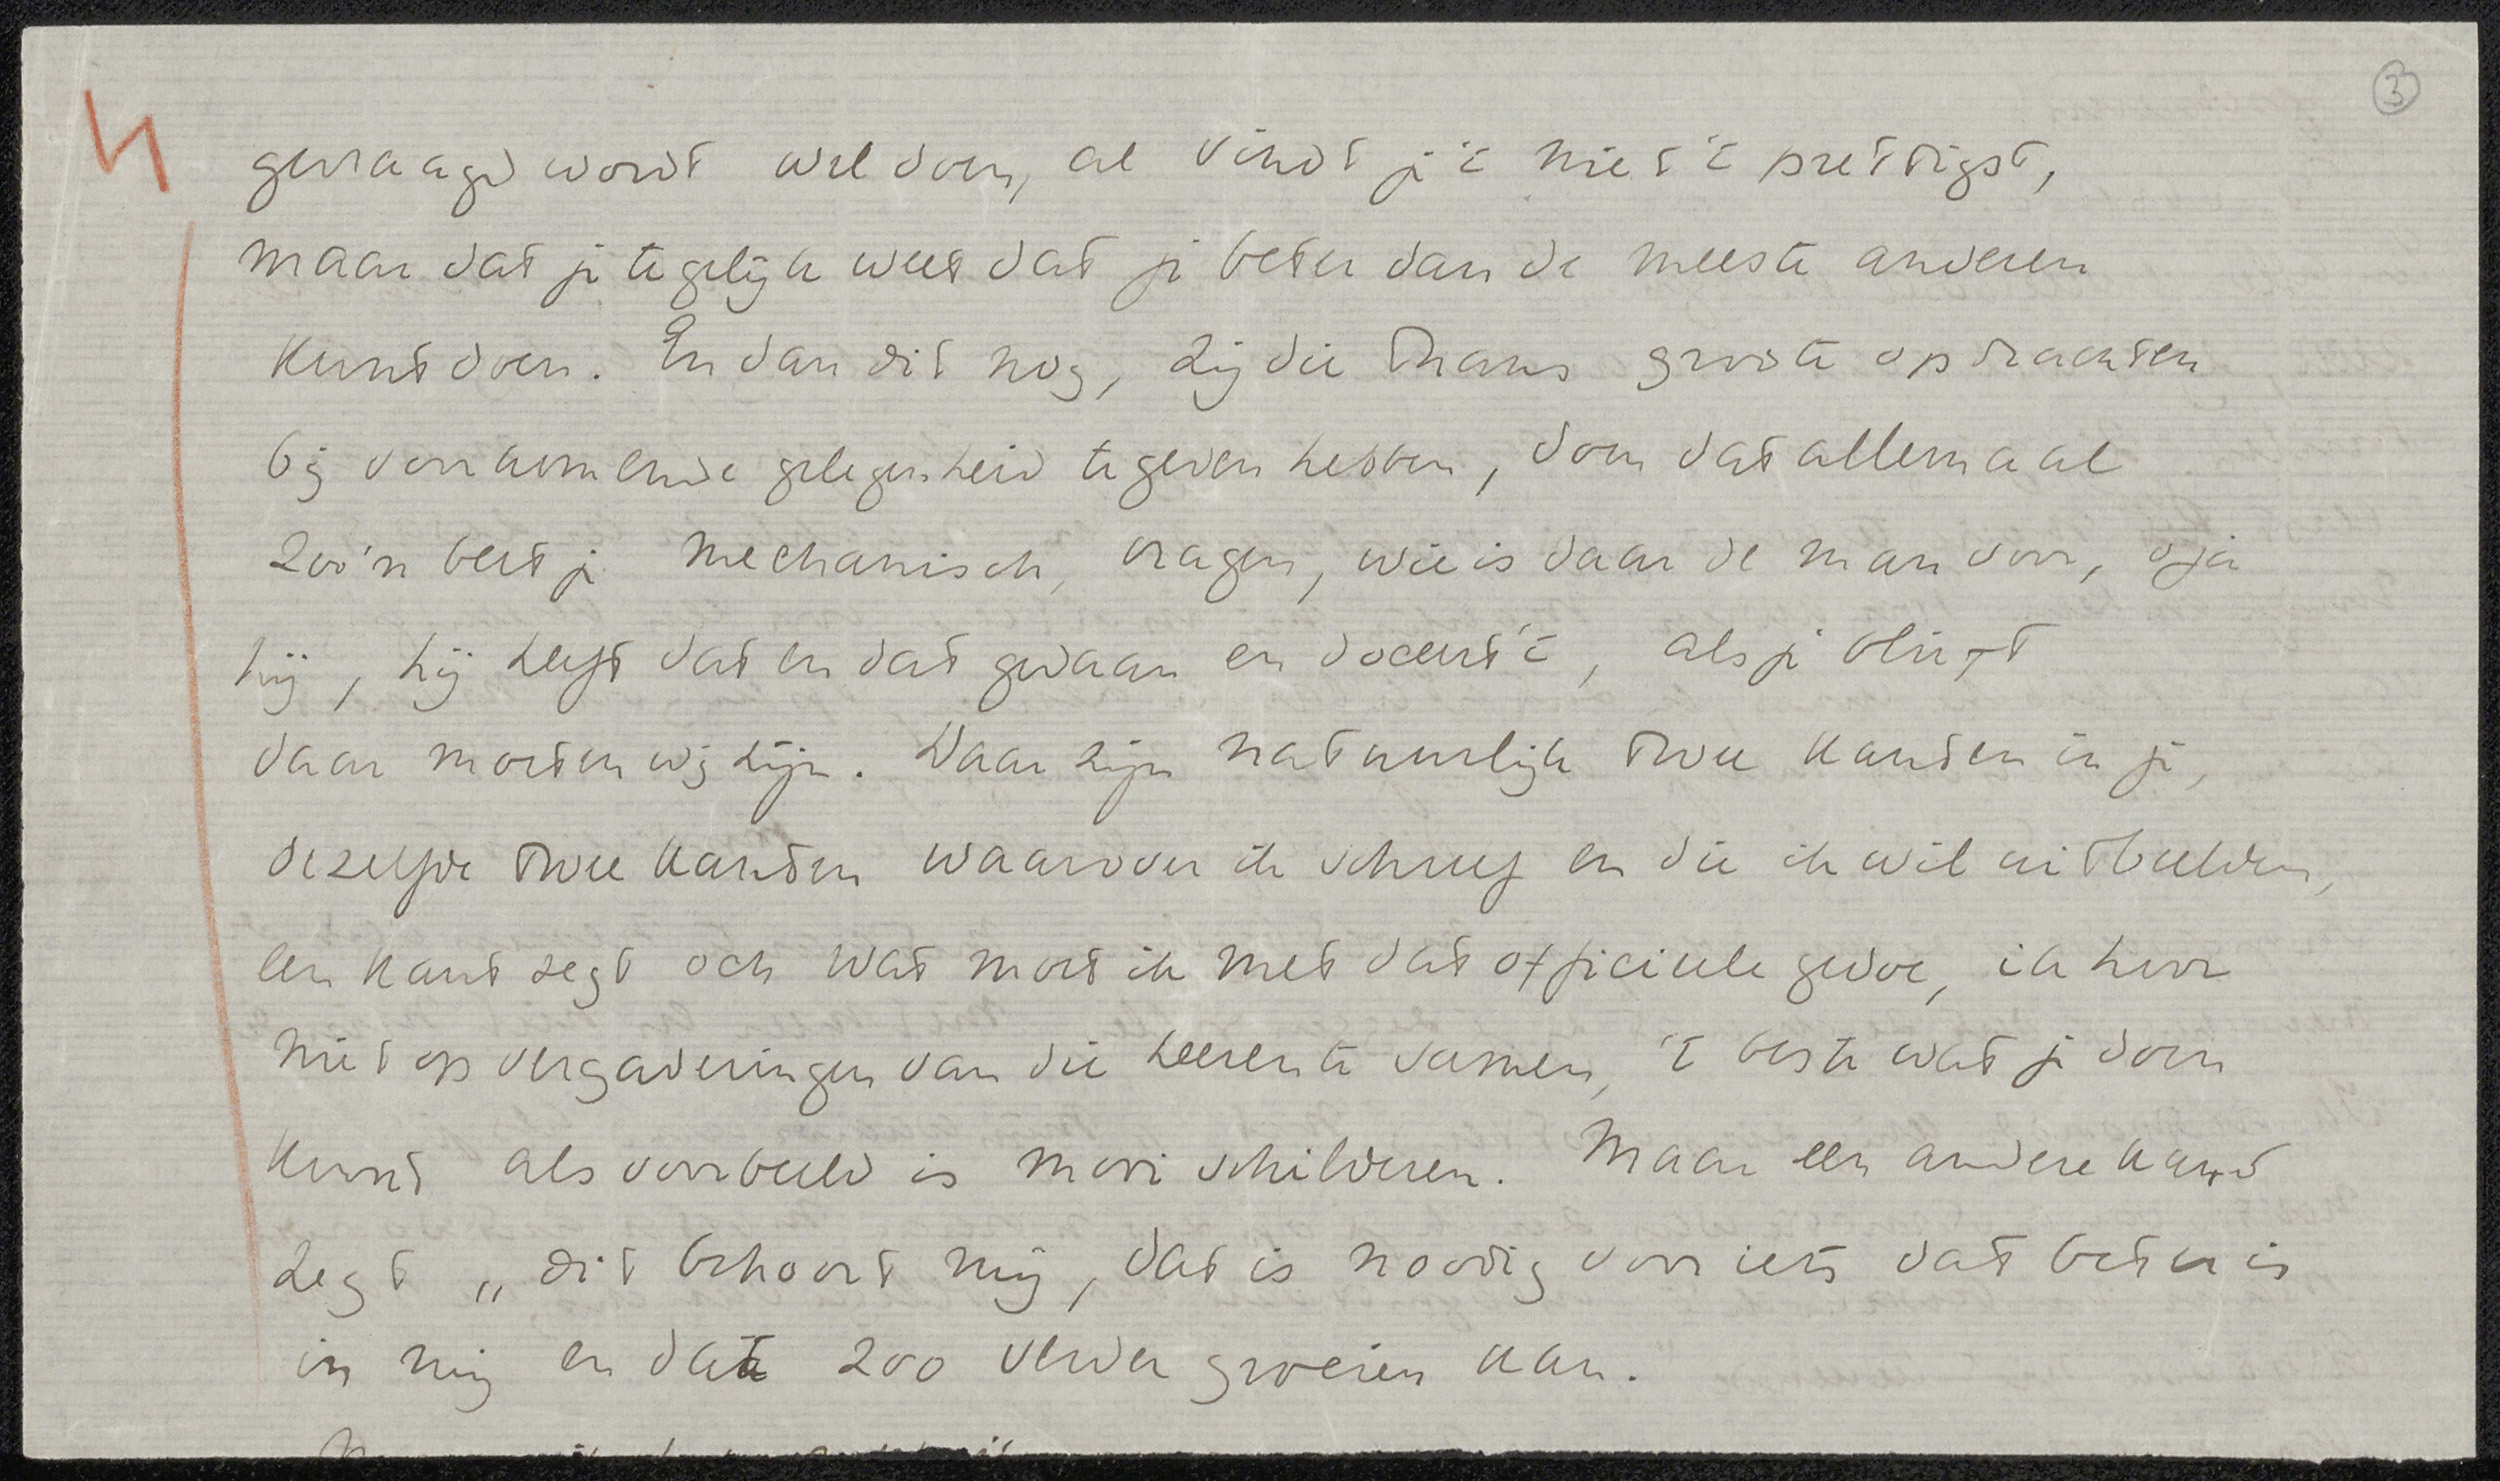 3
gevraagd wordt wel doen, al vindt je 't niet 't prettigst,
maar dat je tegelijk weet dat je beter dan de meeste anderen
kunt doen. En dan dit nog, zij die thans groote opdrachten
bij voorkomende gelegenheid te geven hebben, doen dat allemaal
zoo'n beetje mechanisch, vragen, wie is daar de man voor, o ja
hij, hij heeft dat en dat gedaan en doceert 't, als je blieft
daar moeten wij zijn. Daar zijn natuurlijk twee kanten in je,
dezelfde twee kanten waarover ik schreef en die ik wil uitbeelden,
een kant zegt och wat moet ik met dat officieele gedoe, ik hoor
niet op vergaderingen van die heeren te samen, 't beste wat je doen
kunt als voorbeeld is mooi schilderen. Maar een andere kant
zegt „dit behoort mij, dat is noodig voor iets dat beter is
in mij en dat zoo verder groeien kan.